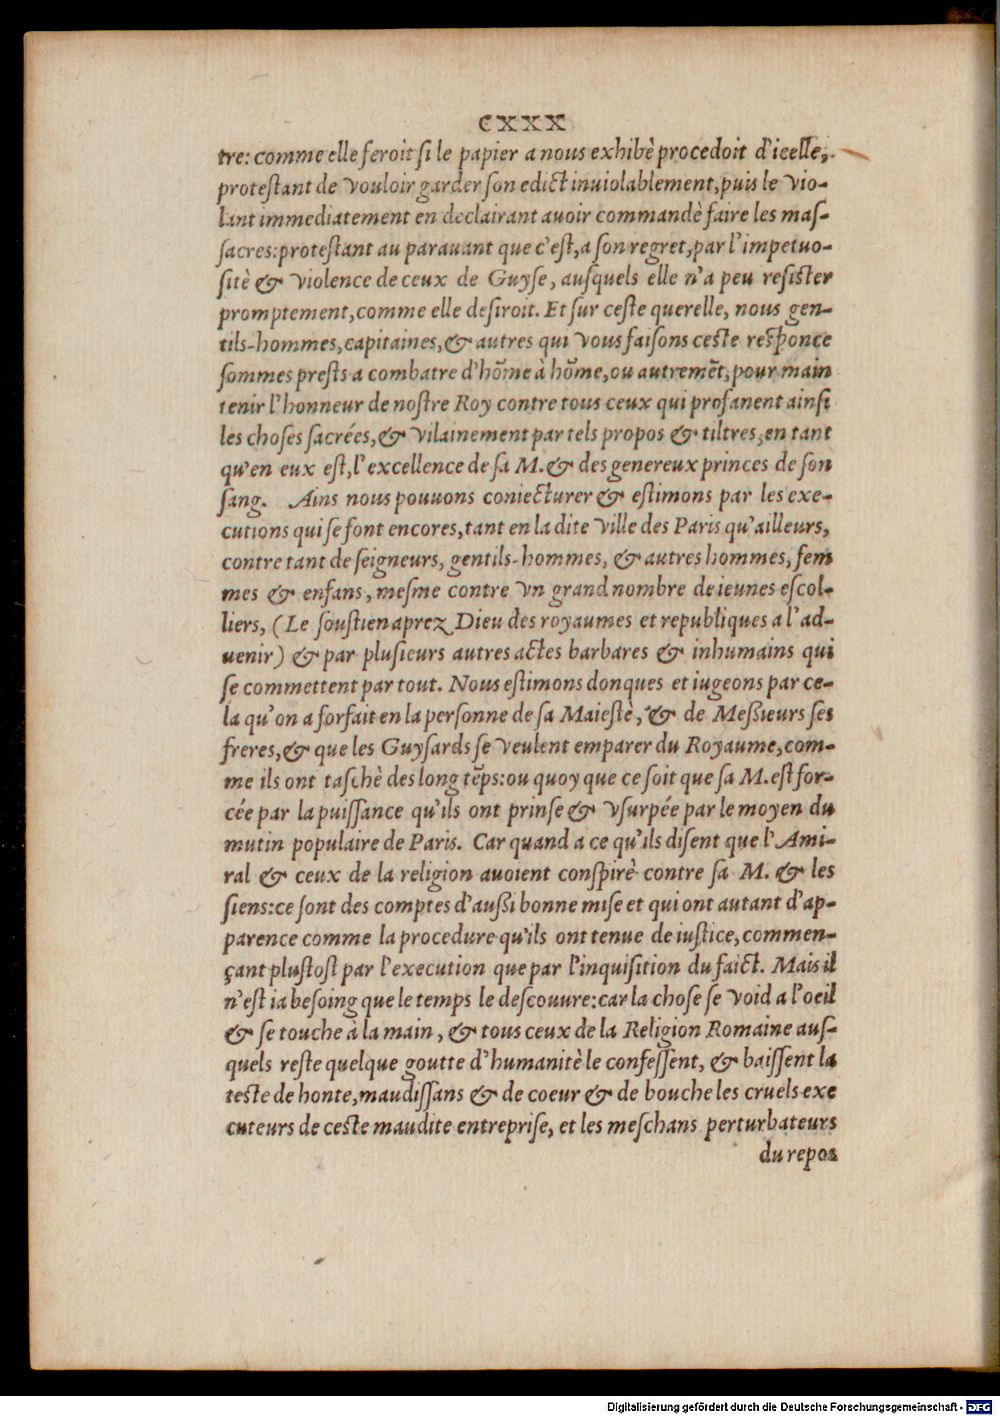 CXXX
tre: comme elle feroit ſi le papier a nous exhibè procedoit d'icelle,
proteſtant de vouloir garder ſon edict inuiolablement, puis le vio-
lant immediatement en declairant auoir commandè faire les maſ-
ſacres: proteſtant au parauant que c'eſt, a ſon regret, par l'impetuo-
ſitè & violence de ceux de Guyſe, auſquels elle n'a peu reſiſter
promptement, comme elle deſiroit. Et ſur ceſte querelle, nous gen-
tils-hommes, capitaines, & autres qui vous faiſons ceſte reſponce
ſommes preſts a combatre d'hōme à hōme, ou autremēt, pour main
tenir l'honneur de noſtre Roy contre tous ceux qui profanent ainſi
les choſes ſacrées, & vilainement par tels propos & tiltres, en tant
qu'en eux eſt, l'excellence de ſa M. & des genereux princes de ſon
ſang. Ains nous pouuons coniecturer & eſtimons par les exe-
cutions qui ſe font encores, tant en la dite ville des Paris qu'ailleurs,
contre tant de ſeigneurs, gentils-hommes, & autres hommes, fem
mes & enfans, meſme contre vn grand nombre de ieunes eſcol-
liers, (Le ſouſtien aprez Dieu des royaumes et republiques a l'ad-
uenir) & par pluſieurs autres actes barbares & inhumains qui
ſe commettent par tout. Nous eſtimons donques et iugeons par ce-
la qu'on a forfait en la perſonne de ſa Maieſtè, & de Meßieurs ſes
freres, & que les Guyſards ſe veulent emparer du Royaume, com-
me ils ont taſchè des long tēps: ou quoy que ce ſoit que ſa M. eſt for-
cée par la puiſſance qu'ils ont prinſe & vſurpée par le moyen du
mutin populaire de Paris. Car quand a ce qu'ils diſent que l'Ami-
ral & ceux de la religion auoient conſpirè contre ſa M. & les
ſiens: ce ſont des comptes d'außi bonne miſe et qui ont autant d'ap-
parence comme la procedure qu'ils ont tenue de iuſtice, commen-
çant pluſtoſt par l'execution que par l'inquiſition du faict. Mais il
n'eſt ia beſoing que le temps le deſcouure: car la choſe ſe void a l'oeil
& ſe touche à la main, & tous ceux de la Religion Romaine auſ-
quels reſte quelque goutte d'humanitè le confeſſent, & baiſſent la
teſte de honte, maudiſſans & de coeur & de bouche les cruels exe
cuteurs de ceſte maudite entrepriſe, et les meſchans perturbateurs
du repos
Digitalisierung gefördert durch die Deutsche Forschungsgemeinschaft - DFG